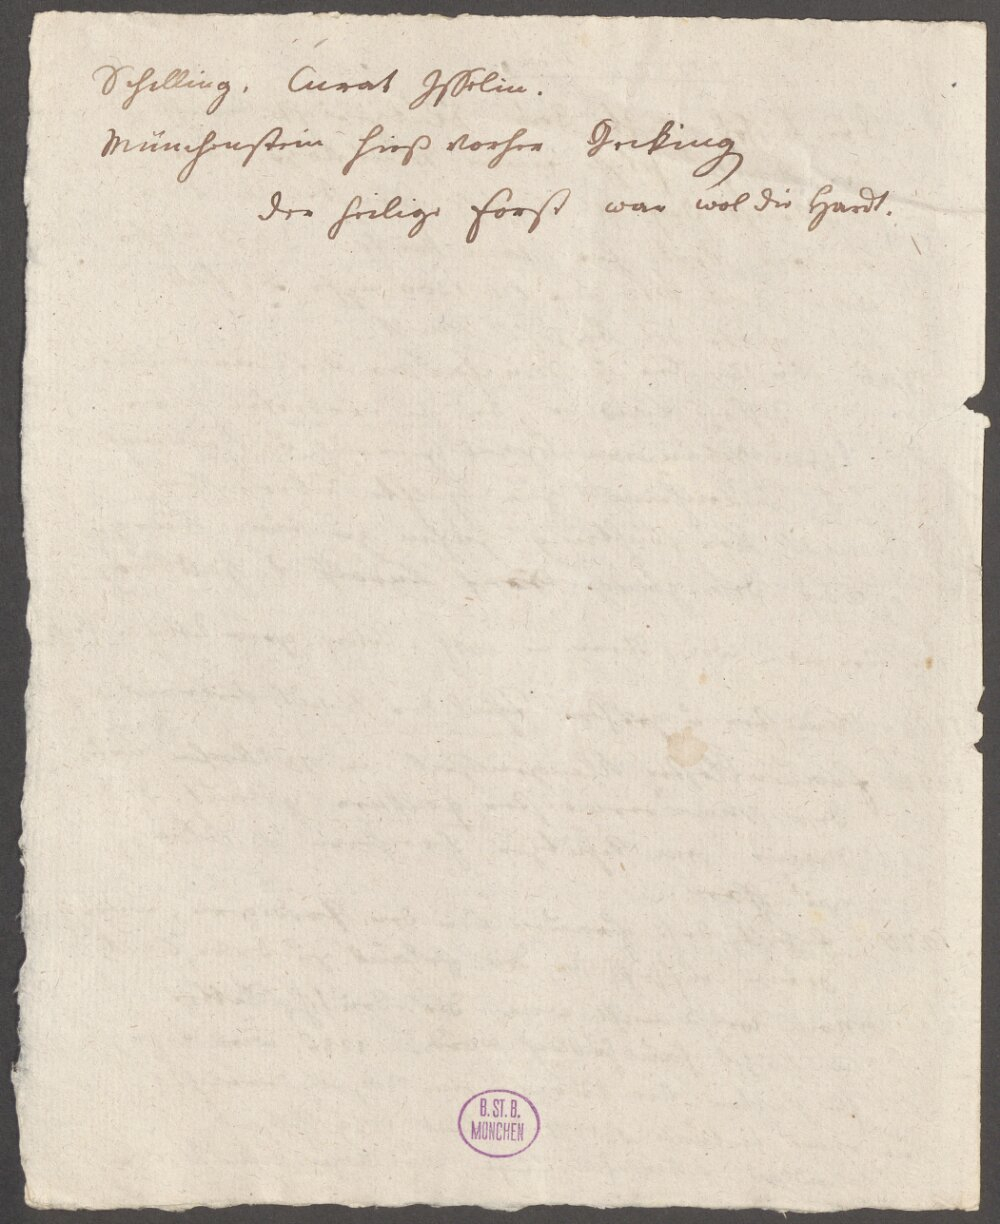 Schilling. Curat Isselin.
Münchenstein hieß vorher Gecking
der heilige Forst war wol die Hardt.
B. ST. B.
MÜNCHEN